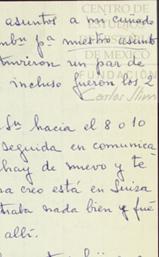 CENTRO DE
ESTUDIOS
DE HISTORIA
DE MEXICO
FUNDACIÓN
Carlos Slim
asuntos a mi cuñado
nuestro asunto
tuvieron un par de
incluso fueron los 2
Su hacia el 8 o 10
seguida en comunica
hay de nuevo y te
sa creo está en Suiza
traba nada bien y fué
allí.